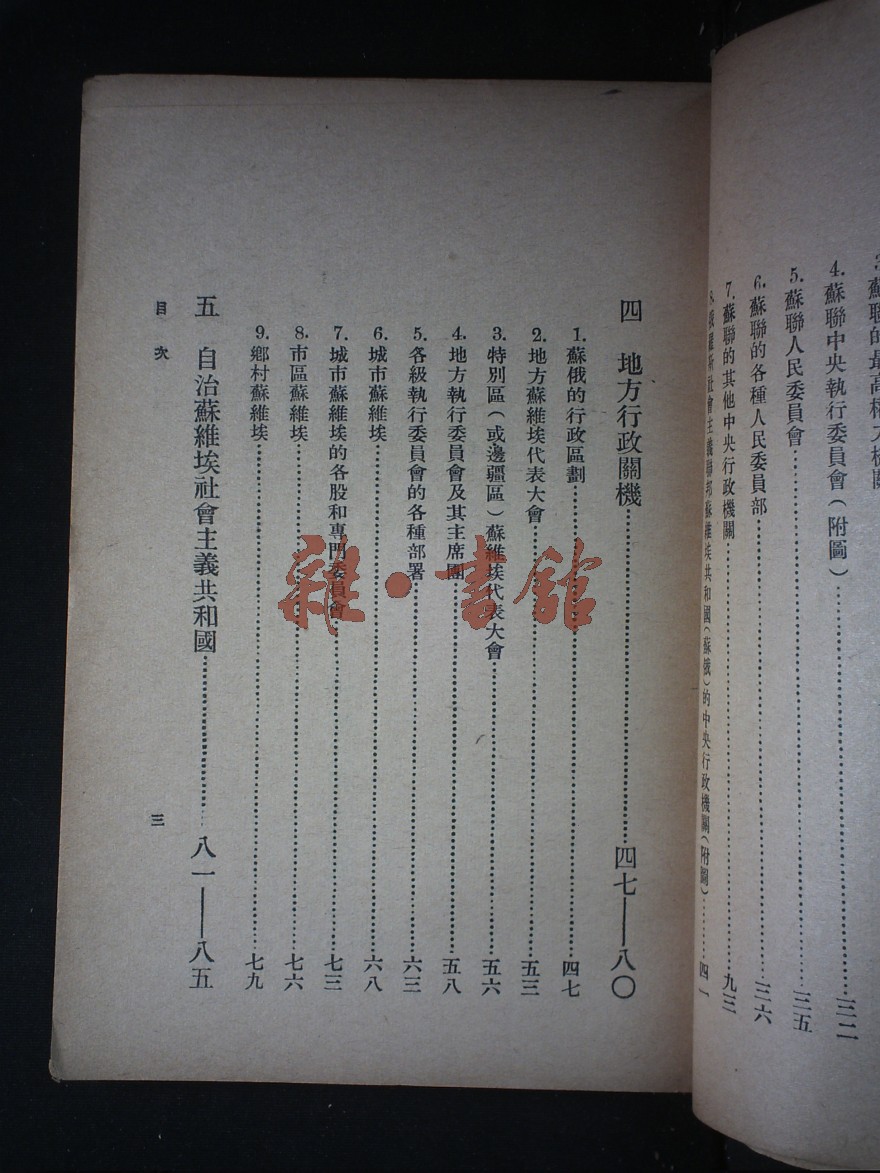 3. 蘇聯的最高權力機關
4. 蘇聯中央執行委員會(附圖)……三二
5. 蘇聯人民委員會……三五
6. 蘇聯的各種人民委員部……三六
7. 蘇聯的其他中央行政機關……九三
8. 俄羅斯社會主義聯邦蘇維埃共和國(蘇俄)的中央行政機關(附圖)……四一
四 地方行政關機……四七——八〇
1. 蘇俄的行政區劃……四七
2. 地方蘇維埃代表大會……五三
3. 特別區(或邊疆區)蘇維埃代表大會……五六
4. 地方執行委員會及其主席團……五八
5. 各級執行委員會的各種部署……六三
6. 城市蘇維埃……六八
7. 城市蘇維埃的各股和專門委員會……七三
8. 市區蘇維埃……七六
9. 鄉村蘇維埃……七九
五 自治蘇維埃社會主義共和國……八一——八五
目次
三
雜·書館